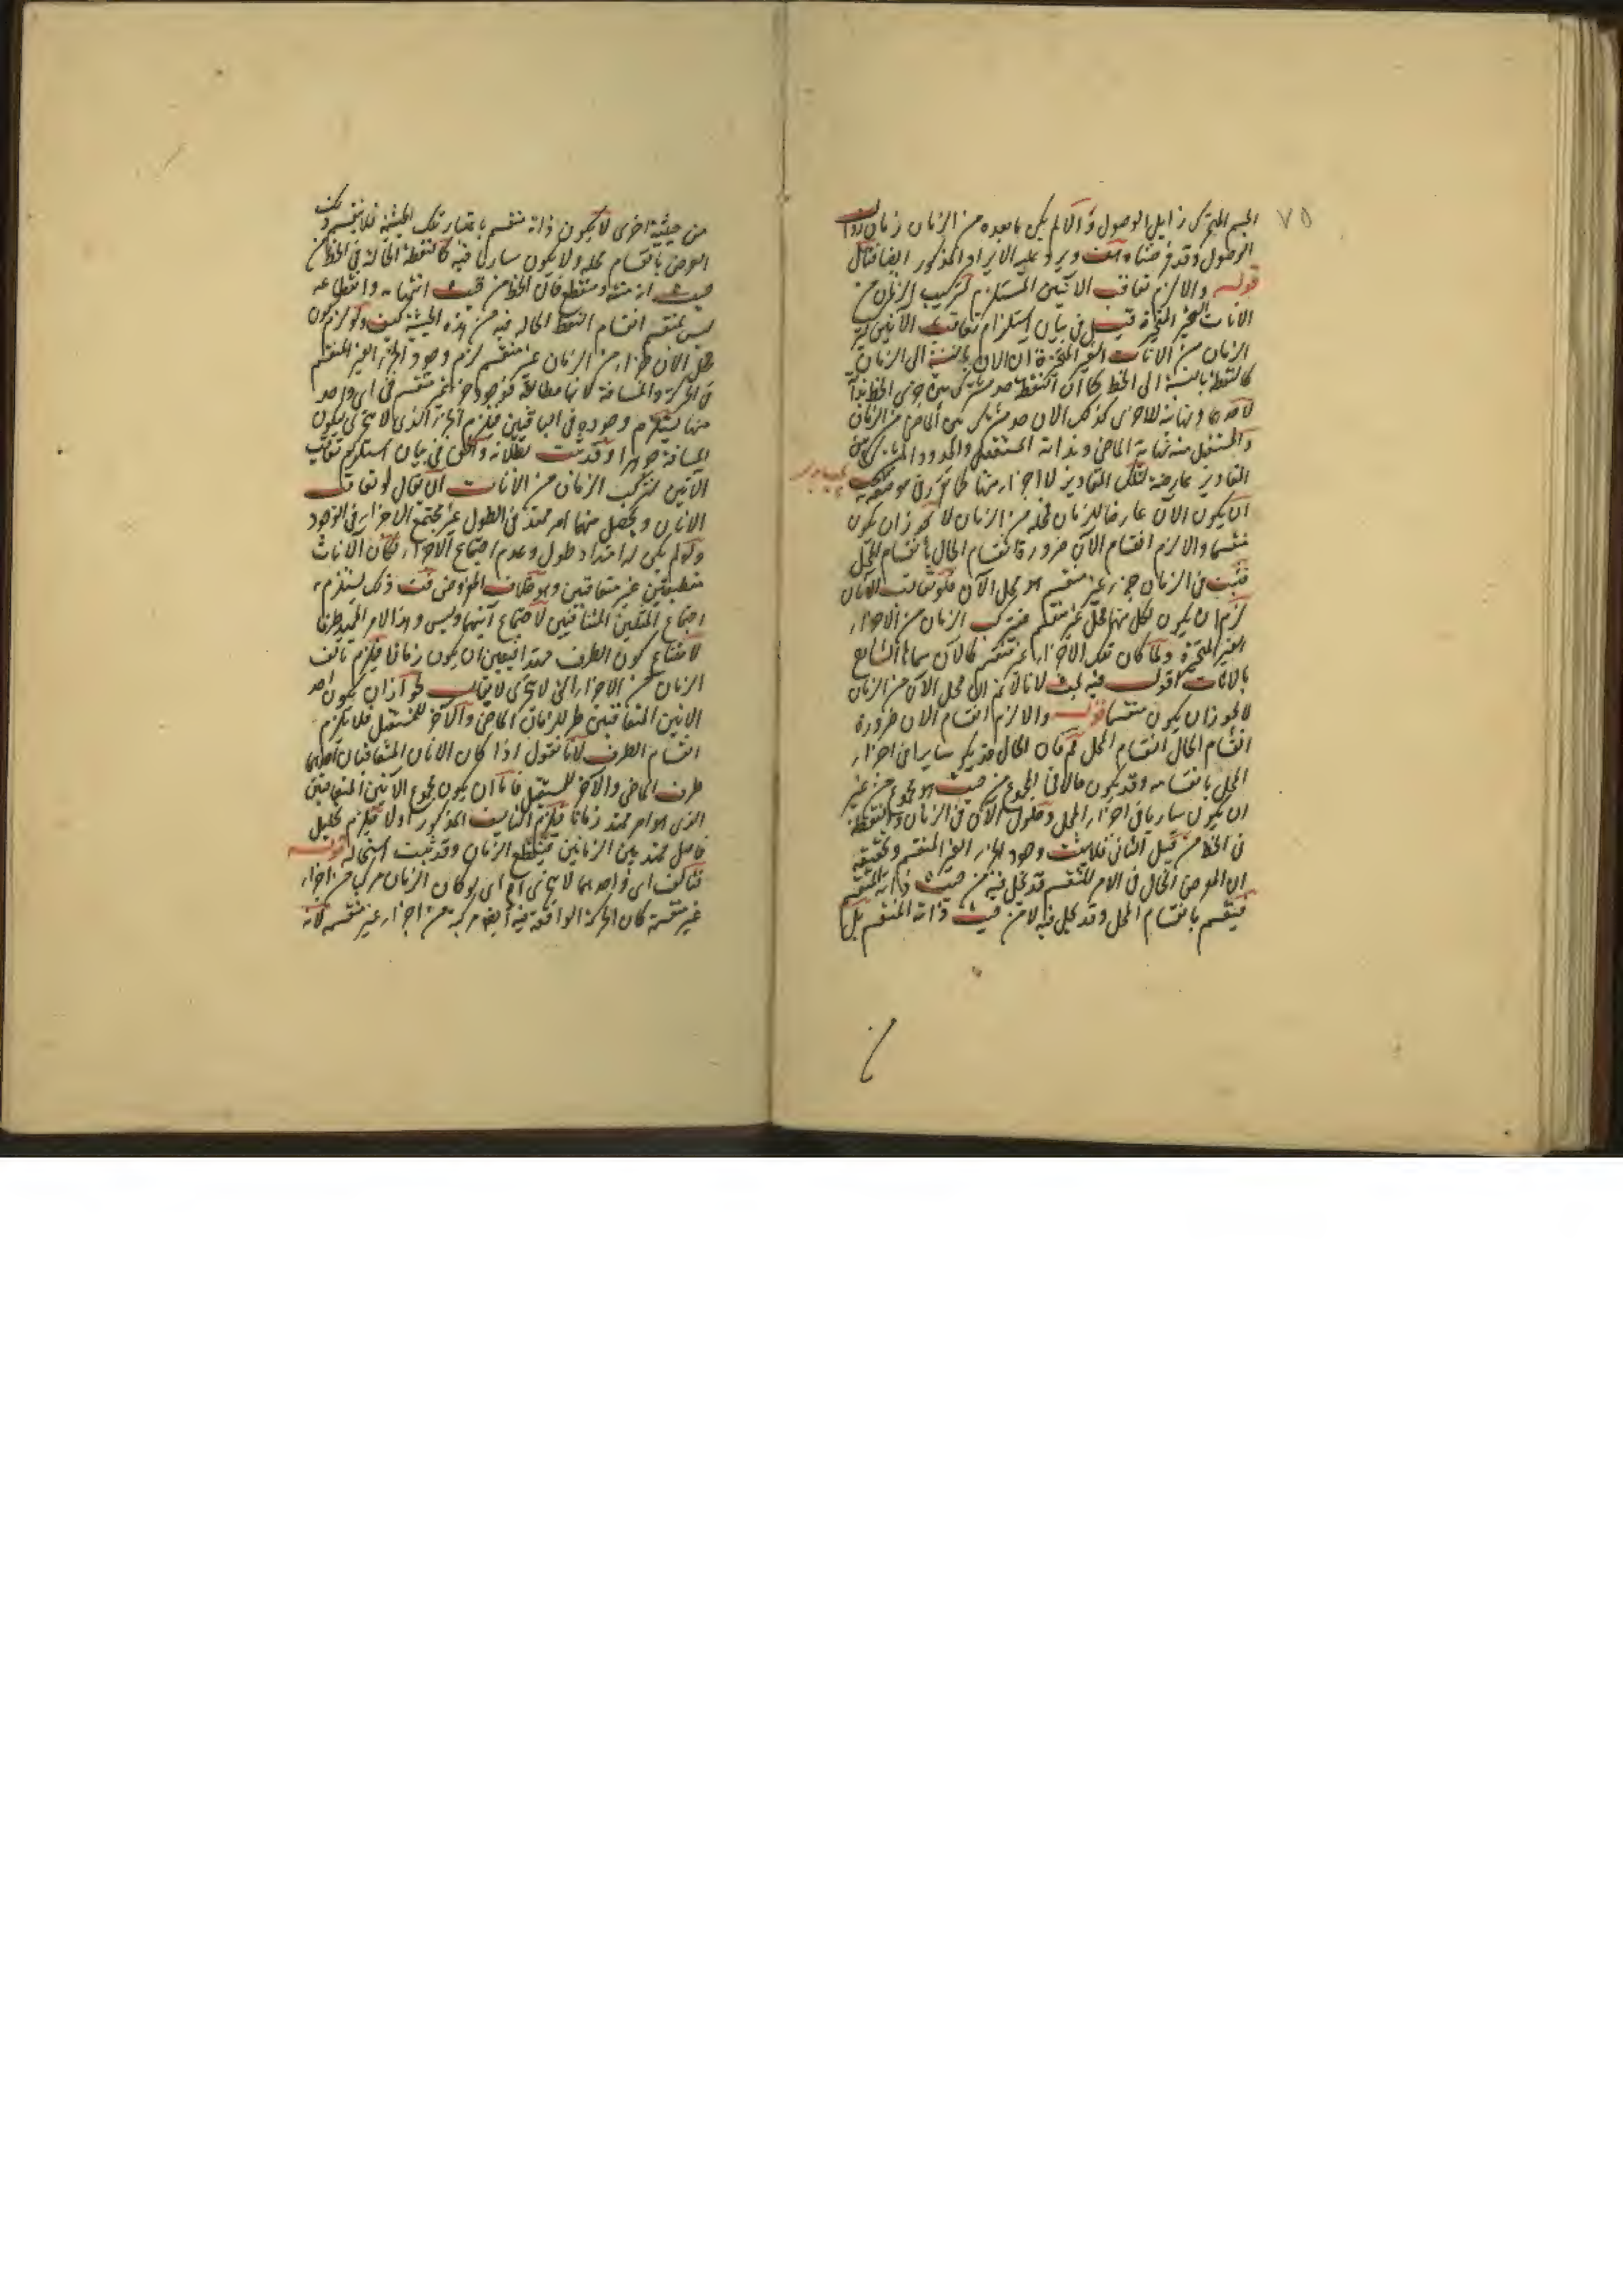 ٧٥
الجسم المتحرك زايل الوصول والا لم يكن ما بعده من الزمان زمان زوال
الوصول وقد فرضناه هف ويرد عليه الايراد المذكور ايضا فتأمل
قوله والا لزم تعاقب الآنين المستلزم لتركيب الزمان من
الانات الغير المتجزية قيل في بيان استلزام تعاقب الآنين
الزمان من الانات الغير المتجزية ان الآن بالنسبة الى الزمان
كالنقطة بالنسبة الى الخط فكما ان النقطة حد مشترك بين جزئي الخط
لاحدها ونهاية للاخرى كذلك الان حد مشترك بين الماضي من الزمان
والمستقبل منه نهاية الماضي وبداية المستقبل والحدود المشتركة بين
المقادير عارضة لتلك المقادير لا اجزاء منها كما تقرر في موضعه
ان يكون الآن عارضا للزمان فمحله من الزمان لا يجوز ان يكون
منقسما والا لزم انقسام الآن ضرورة انقسام الحال بانقسام المحل
فثبت في الزمان جزء غير منقسم هو محل الآن فلو تتالت الآنان
لزم ان يكون لكل منهما محل غير منقسم فيتركب الزمان من الاجزاء
الغير المتجزية ولما كان تلك الاجزاء غير منقسمة كالآن سماها الشارح
بالانات اقول فيه بحث لانا لا نم ان محل الآن من الزمان
لا يجوز ان يكون منقسما قوله والا لزم انقسام الان ضرورة
انقسام الحال انقسام المحل قلنا مم فان الحال قد يكون ساريا في اجزاء
المحل بانقسامه وقد يكون حالا في المجموع من حيث هو مجموع من غير
ان يكون ساريا في اجزاء المحل وحلول الآن في الزمان والنقطة
في الخط من قبيل الثاني فلا يثبت وجود الجزء الغير المنقسم وتحقيقه
ان العرض الحال في الامر المنقسم قد يحل فيه من حيث ذاته المنقسم
فينقسم بانقسام المحل وقد يحل فيه لا من حيث ذاته المنقسم بل
من حيثية اخرى لا يكون ذاته منقسم باعتبار تلك الحيثية فلا ينقسم ذلك
العرض بانقسام محله ولا يكون ساريا فيه كالنقطة الحالة في الخط من
حيث انه منته ومنقطع فان الخط من حيث انتهائه وانقطاعه
ليس بمنقسم انقسام النقطة الحالة فيه من هذه الحيثية كيف ولو لزم كون
محل الان جزءا من الزمان غير منقسم لزم وجود الجزء الغير المنقسم
في الحركة والمسافة لانها مطابقة فوجود جزء غير منقسم في اي واحد
منها يستلزم وجوده في الباقيين فيلزم الجزء الذي لا يتجزى لكون
المسافة جوهرا وقد ثبت بطلانه والحق في بيان استلزام تعاقب
الآنين لتركب الزمان من الآنات ان يقال لو تعاقب
الانان ويحصل منهما امر ممتد في الطول غير مجتمع الاجزاء في الوجود
ولو لم يكن له امتداد طول وعدم اجتماع الاجزاء لكان الآنات
منطبقتين غير متعاقبتين وهو خلاف المفروض قلت ذلك يستلزم
اجتماع المتنافيين لاجتماع آنيهما وليس وهذا الامر الممتد طرفا
لامتناع كون الطرف ممتدا فيتعين ان يكون زمانا فيلزم تألف
الزمان من الاجزاء التي لا تتجزى لا يقال يجوز ان يكون احد
الانين المتعاقبين طرفا للزمان الماضي والآخر للمستقبل فلا يلزم
انقسام الطرف لانا نقول اذا كان الانان المتعاقبان احدهما
طرف الماضي والآخر للمستقبل فاما ان يكون مجموع الآنين المتعاقبين
الذي هو امر ممتد زمانا فيلزم التأليف المذكور اولا فيلزم تخلل
فاصل ممتد بين الزمانين فينقطع الزمان وقد ثبت استحالته قوله
فتألف اي واحد مما لا يتجزى اه اي لو كان الزمان مركبا من اجزاء
غير منقسمة كان الحركة الواقعة فيه ايضا مركبة من اجزاء غير منقسمة لانه